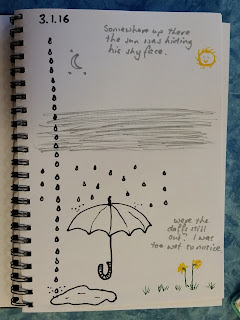 3.1.16
Somewhere up there
the sun was hiding
his shy face.
were the
daffs still
out? I was
too wet to notice